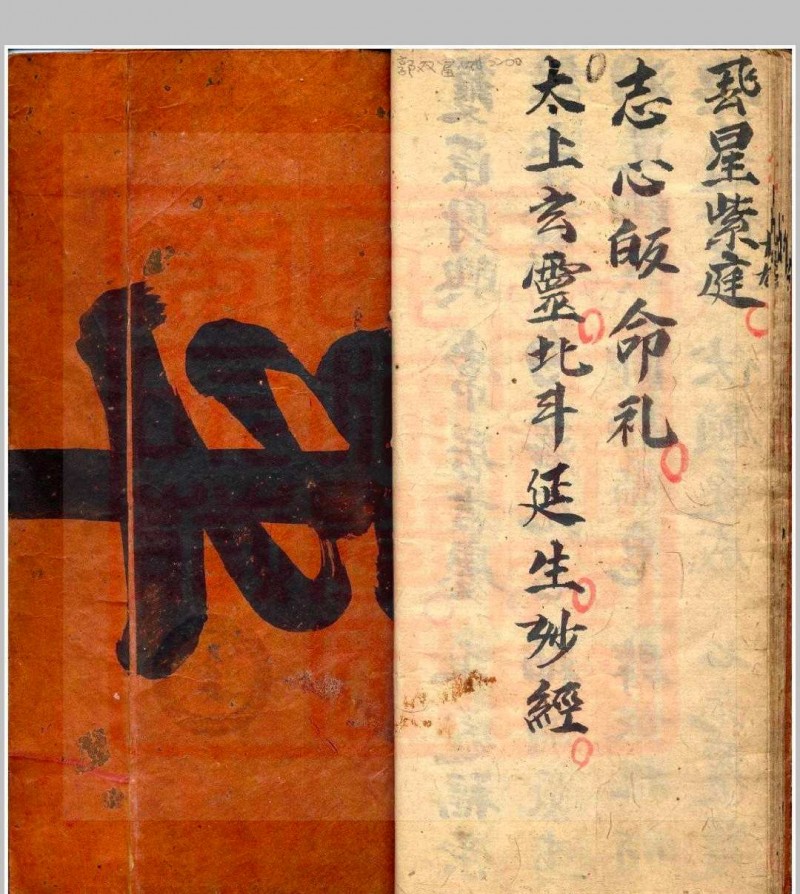 飛星紫庭
志心皈命礼
太上玄霊北斗延生妙經
郭双富